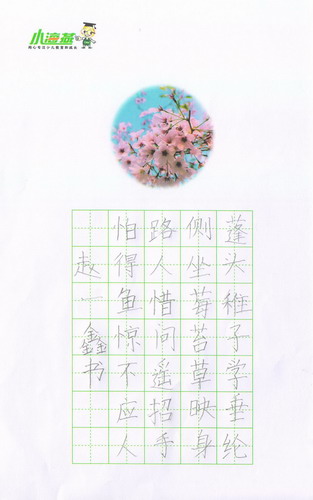 小海燕
蓬头稚子学垂纶
侧坐莓苔草映身
路人惜问遥招手
怕得鱼惊不应人
越一鑫书